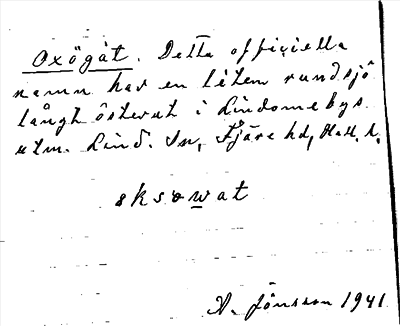 Oxögat. Detta officiella
namn har en liten rund sjö
långt österut i Lindomebys
utm. Lind. sn, Fjäre hd, Hall. l.
oksowat
A. Jönsson 1941